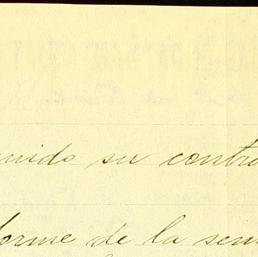 nido su contra
forme de la sem